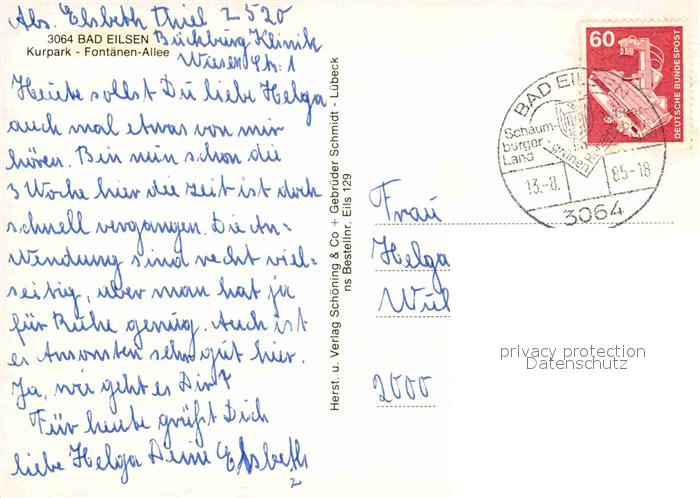 Abs. Elsbeth Thiel 2 520
3064 BAD EILSEN Bückburg Klinik
Kurpark - Fontänen-Allee
Wiesen Str. 1
Heute sollst Du liebe Helga
auch mal etwas von mir
hören. Bin nun schon die
3 Woche hier die Zeit ist doch
schnell vergangen. Die An-
wendung sind recht viel-
seitig, aber man hat ja
für Ruhe genug. Auch ist
es Ansonsten sehr gut hier.
Ja, wie geht es Dir?
Für heute grüßt Dich
liebe Helga Deine Elsbeth
Herst. u. Verlag Schöning & Co + Gebrüder Schmidt - Lübeck
ns Bestellnr. Eils 129
60
DEUTSCHE BUNDESPOST
BAD EILSEN
Schaum-
burger
Land
grünen
13.-8. 85-18
3064
Frau
Helga
2000
privacy protection
Datenschutz